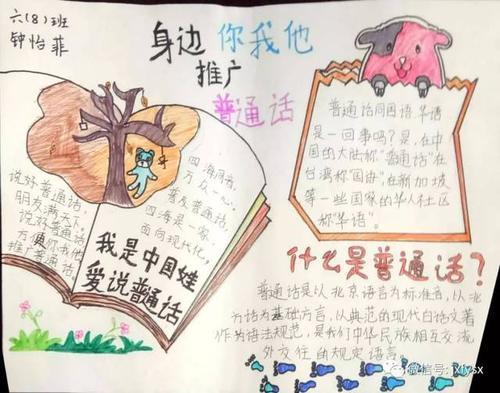 六(8)班
钟怡菲
身边你我他
推广
普通话
普通话同国语、华语
是一回事吗?是,在中
国的大陆称"普通话"在
台湾称"国语",在新加坡
等一些国家的华人社区
称"华语"。
四海同音,
万众一心。
普及普通话,
四海是一家,
面向现代化,
说好普通话,
朋友满天下。
说好普通话,
方便你我他
推广普通话。
我是中国娃
爱说普通话
什么是普通话?
普通话是以北京语音为标准音,以北
方话为基础方言,以典范的现代白话文著
作为语法规范,是我们中华民族相互交流
外交往的规定语言。
微信号: jxlysx